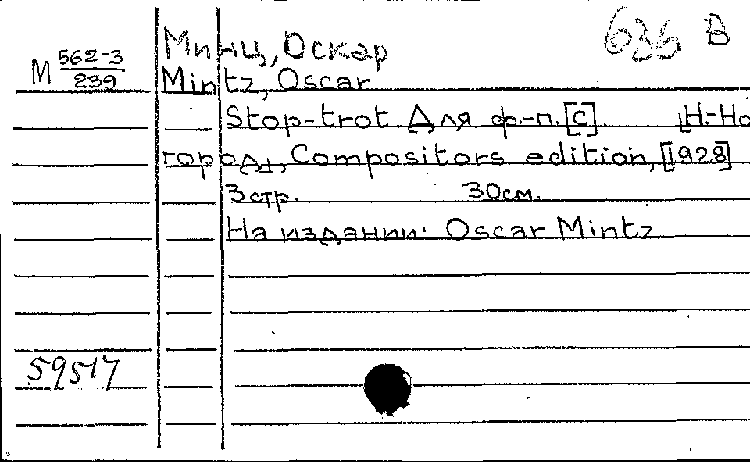 636 В
Минц, Оскар
М 562-3/239
Mintz, Oscar
Stop-trot Для ф.-п. [С]. [Н.-Но
город], Compositors edition, [1928]
3 стр. 30 см.
На издании: Oscar Mintz
59517